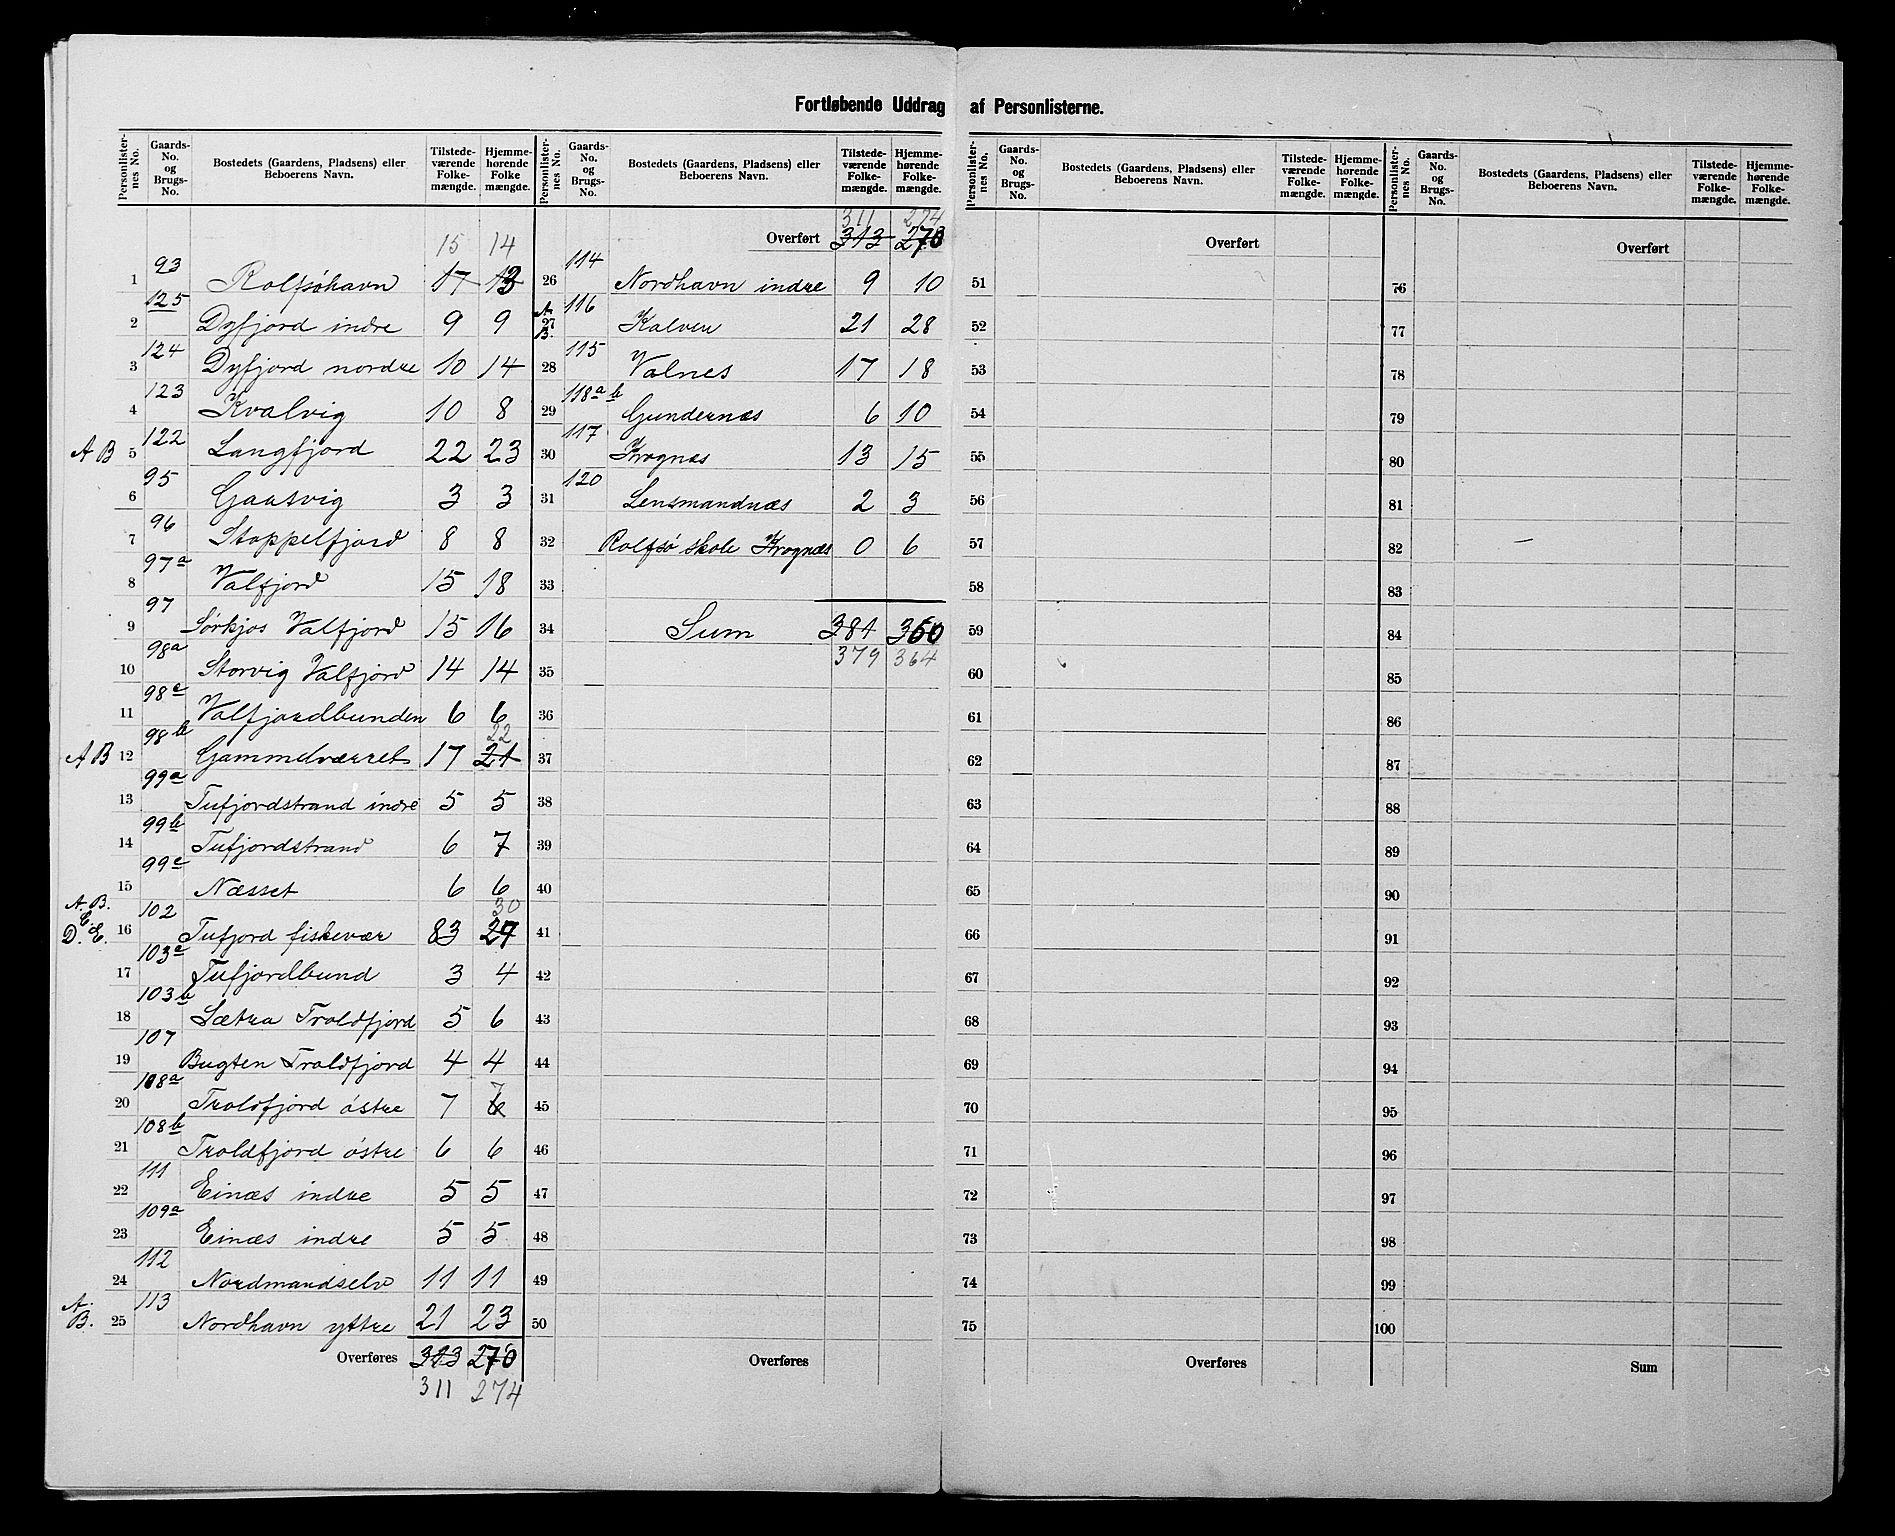 Fortløbende Uddrag af Personlisterne.
Personlister-nes No. Gaards-No. og Brugs-No. Bostedets (Gaardens, Pladsens) eller Beboerens Navn. Tilstede-værende Folke-mængde. Hjemme-hørende Folke mængde.
15 14
93
1 Rolfsøhavn 17 13
125
2 Dyfjord indre 9 9
124
3 Dyfjord nordre 10 14
123
4 Kvalvig 10 8
122
A B 5 Langfjord 22 23
95
6 Gaasvig 3 3
96
7 Stoppelfjord 8 8
97a
8 Valfjord 15 18
97
9 Sørkjos Valfjord 15 16
98a
10 Storvig Valfjord 14 14
98c
11 Valfjordbunden 6 6
98b 22
A B 12 Gammelværret 17 21
99a
13 Tufjordstrand indre 5 5
99b
14 Tufjordstrand 6 7
99c
15 Næsset 6 6
A. B. 102 30
C.
D. E. 16 Tufjord fiskevær 83 27
103a
17 Tufjordbund 3 4
103b
18 Sætra Troldfjord 5 6
107
19 Bugten Troldfjord 4 4
108a 7
20 Troldfjord østre 7 6
108b
21 Troldfjord østre 6 6
111
22 Einæs indre 5 5
109a
23 Einæs indre 5 5
112
24 Nordmandselv 11 11
A. 113
B. 25 Nordhavn yttre 21 23
Overføres 313 270
311 274
Personlister-nes No. Gaards-No. og Brugs-No. Bostedets (Gaardens, Pladsens) eller Beboerens Navn. Tilstede-værende Folke-mængde. Hjemme-hørende Folke-mængde.
311 274
Overført 313 270
114
26 Nordhavn indre 9 10
A. 116
27 Kalven 21 28
B.
115
28 Valnes 17 18
118a b
29 Gundernæs 6 10
117
30 Krognæs 13 15
120
31 Lensmandnæs 2 3
32 Rolfsø skole Krognæs 0 6
33
34 Sum 381 360
379 364
35
36
37
38
39
40
41
42
43
44
45
46
47
48
49
50
Overføres
Personlister-nes No. Gaards-No. og Brugs-No. Bostedets (Gaardens, Pladsens) eller Beboerens Navn. Tilstede-værende Folke-mængde. Hjemme-hørende Folke-mængde.
Overført
51
52
53
54
55
56
57
58
59
60
61
62
63
64
65
66
67
68
69
70
71
72
73
74
75
Overføres
Personlister-nes No. Gaards-No. og Brugs-No. Bostedets (Gaardens, Pladsens) eller Beboerens Navn. Tilstede-værende Folke-mængde. Hjemme-hørende Folke-mængde.
Overført
76
77
78
79
80
81
82
83
84
85
86
87
88
89
90
91
92
93
94
95
96
97
98
99
100
Sum